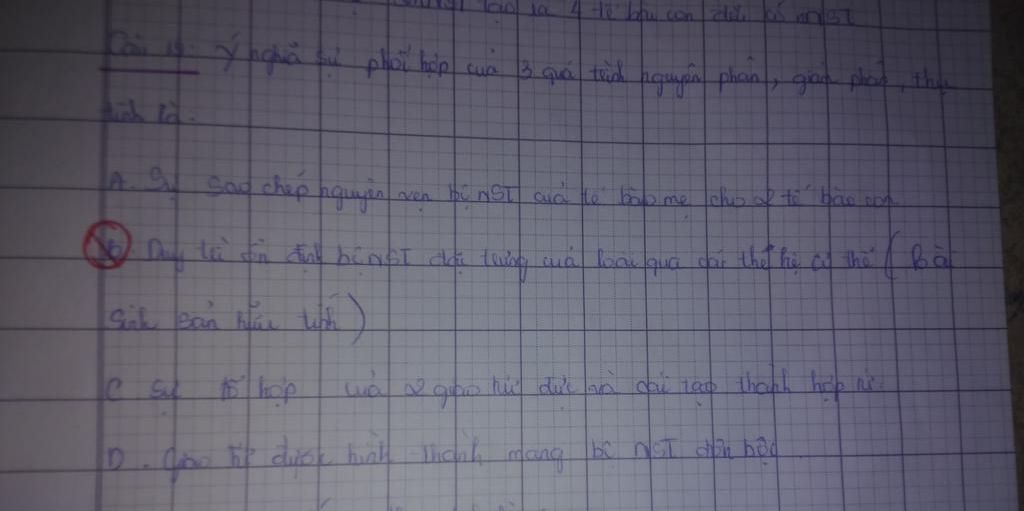 tạo ra 4 tế bào con đều có nNST
Câu 19: Ý nghĩa sự phối hợp của 3 quá trình nguyên phân, giảm phân, thụ
tinh là:
A. Sự sao chép nguyên vẹn bộ NST của tế bào mẹ cho 2 tế bào con
B Duy trì ổn định bộ NST đặc trưng của loài qua các thế hệ cơ thể ( Loài
sinh sản hữu tính )
C Sự tổ hợp của 2 giao tử đực và cái tạo thành hợp tử.
D. Giao tử được hình thành mang bộ NST đơn bội